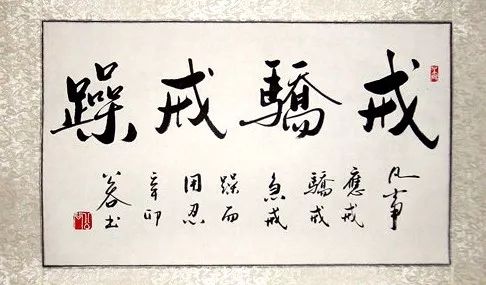 戒驕戒躁
凡事
應戒
驕戒
急戒
躁而
用忍
辛卯
书